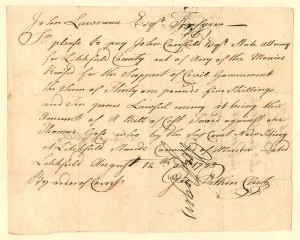 John Lawrence Esqr. Treasurer
Sir please to pay John Canfield Esqr. State Attorney
for Litchfield County out of any of the Monies
Raised for the Support of Civil Government
the Sum of Thirty one pounds five Shillings
and Ten pence Lawful money it being the
Amount of a Bill of Cost Taxed against one
Thomas Goss who by the Supr. Court now Sitting
at Litchfield Stands Convicted of Murder Dated
Litchfield August 1785
By order of Court Pitkin Clerk